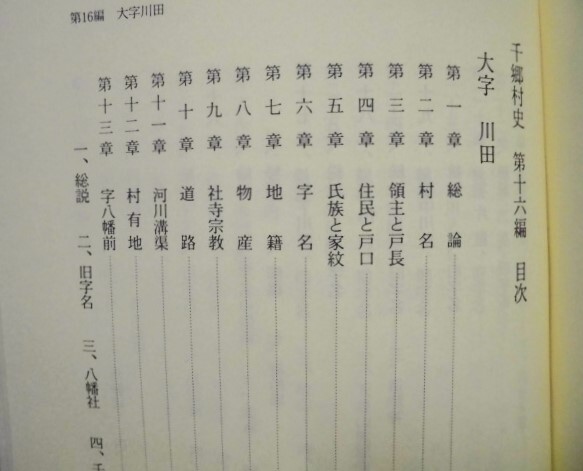 第16編 大字川田
千郷村史 第十六編 目次
大字 川田
第一章 総論
第二章 村名
第三章 領主と戸長
第四章 住民と戸口
第五章 氏族と家紋
第六章 字名
第七章 地籍
第八章 物産
第九章 社寺宗教
第十章 道路
第十一章 河川溝渠
第十二章 村有地
第十三章 字八幡前
一、総説 二、旧字名 三、八幡社 四、